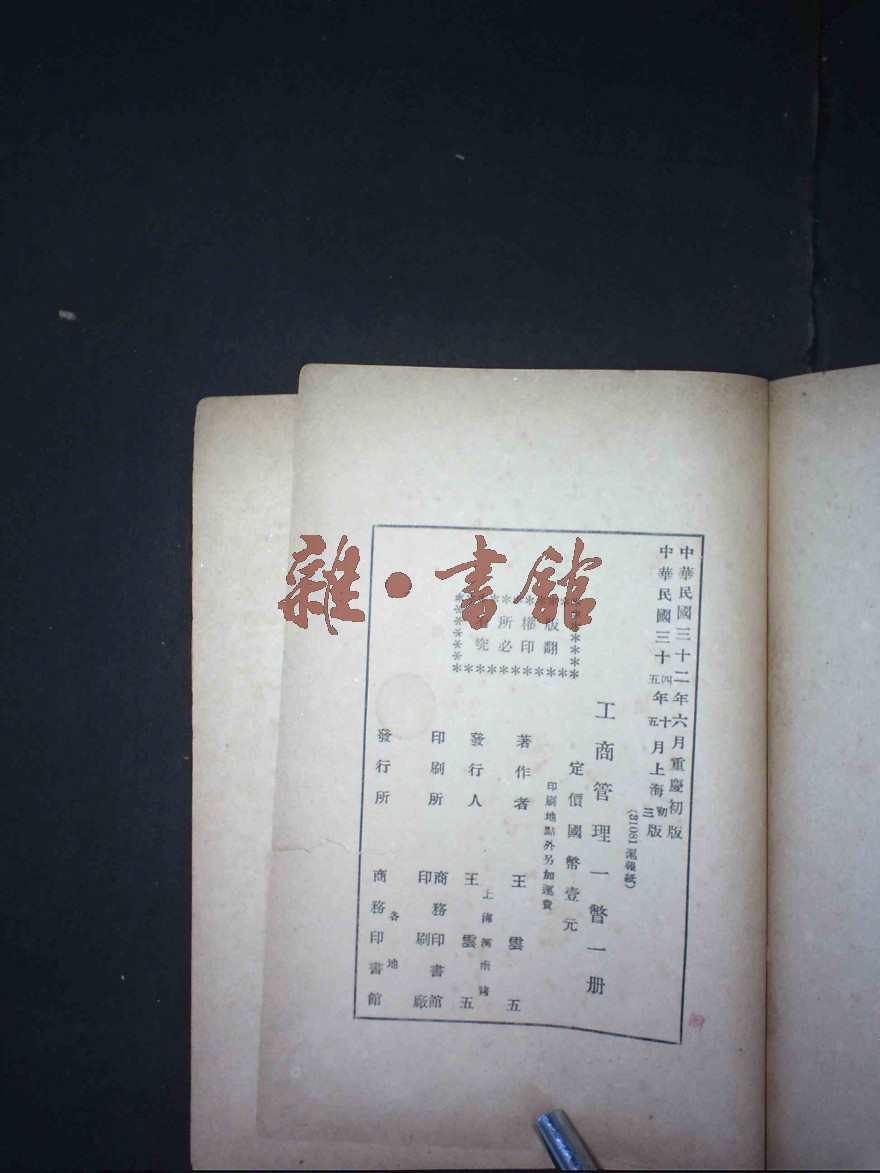 雜·書館
中華民國三十二年六月重慶初版
中華民國三十四五年十五月上海初三版
(31081滬報紙)
工商管理一瞥一册
定價國幣壹元
印刷地點外另加運費
版權所有
翻印必究
著作者 王雲五
上海河南路
發行人 王雲五
印刷所 商務印書館
印刷廠
各地
發行所 商務印書館